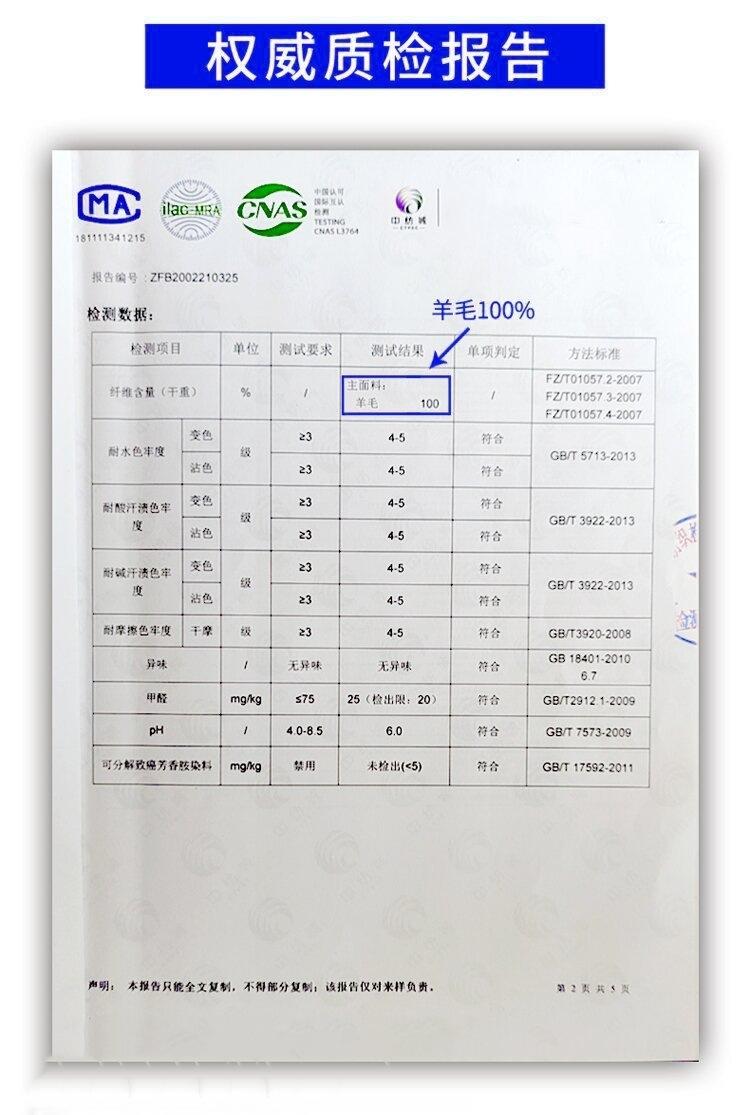 权威质检报告
MA
181111341215
ilac-MRA
CNAS
中国认可
国际互认
检测
TESTING
CNAS L3764
中纺城
报告编号：ZFB2002210325
检测数据：
羊毛100%
检测项目 单位 测试要求 测试结果 单项判定 方法标准
纤维含量（干重） % / 主面料： 羊毛 100 / FZ/T01057.2-2007
FZ/T01057.3-2007
FZ/T01057.4-2007
耐水色牢度 变色 级 ≥3 4-5 符合 GB/T 5713-2013
沾色 ≥3 4-5 符合
耐酸汗渍色牢度 变色 级 ≥3 4-5 符合 GB/T 3922-2013
沾色 ≥3 4-5 符合
耐碱汗渍色牢度 变色 级 ≥3 4-5 符合 GB/T 3922-2013
沾色 ≥3 4-5 符合
耐摩擦色牢度 干摩 级 ≥3 4-5 符合 GB/T3920-2008
异味 / 无异味 无异味 符合 GB 18401-2010
6.7
甲醛 mg/kg ≤75 25（检出限：20） 符合 GB/T2912.1-2009
pH / 4.0-8.5 6.0 符合 GB/T 7573-2009
可分解致癌芳香胺染料 mg/kg 禁用 未检出(<5) 符合 GB/T 17592-2011
声明： 本报告只能全文复制，不得部分复制；该报告仅对来样负责。
第 2 页 共 5 页